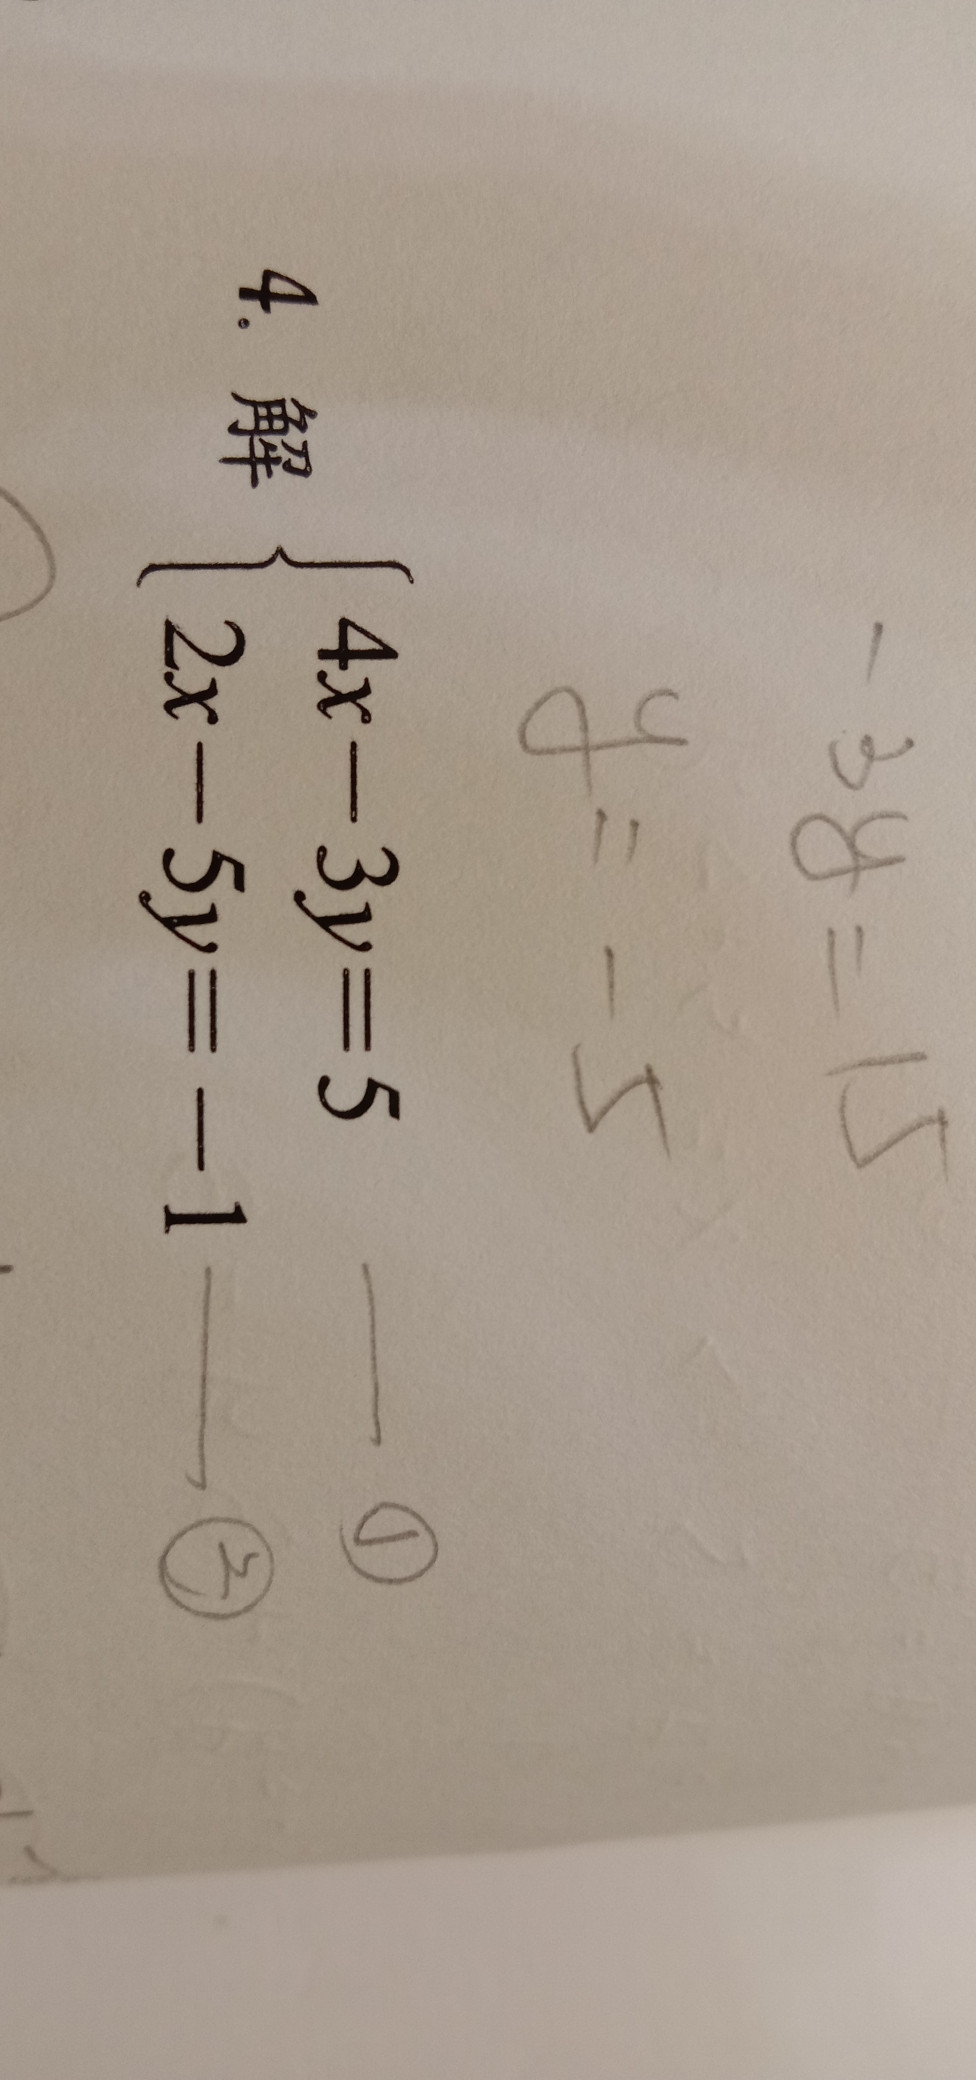 -3y = 15
y = -5
4. 解 { 4x - 3y = 5 — ①
2x - 5y = -1 — ②